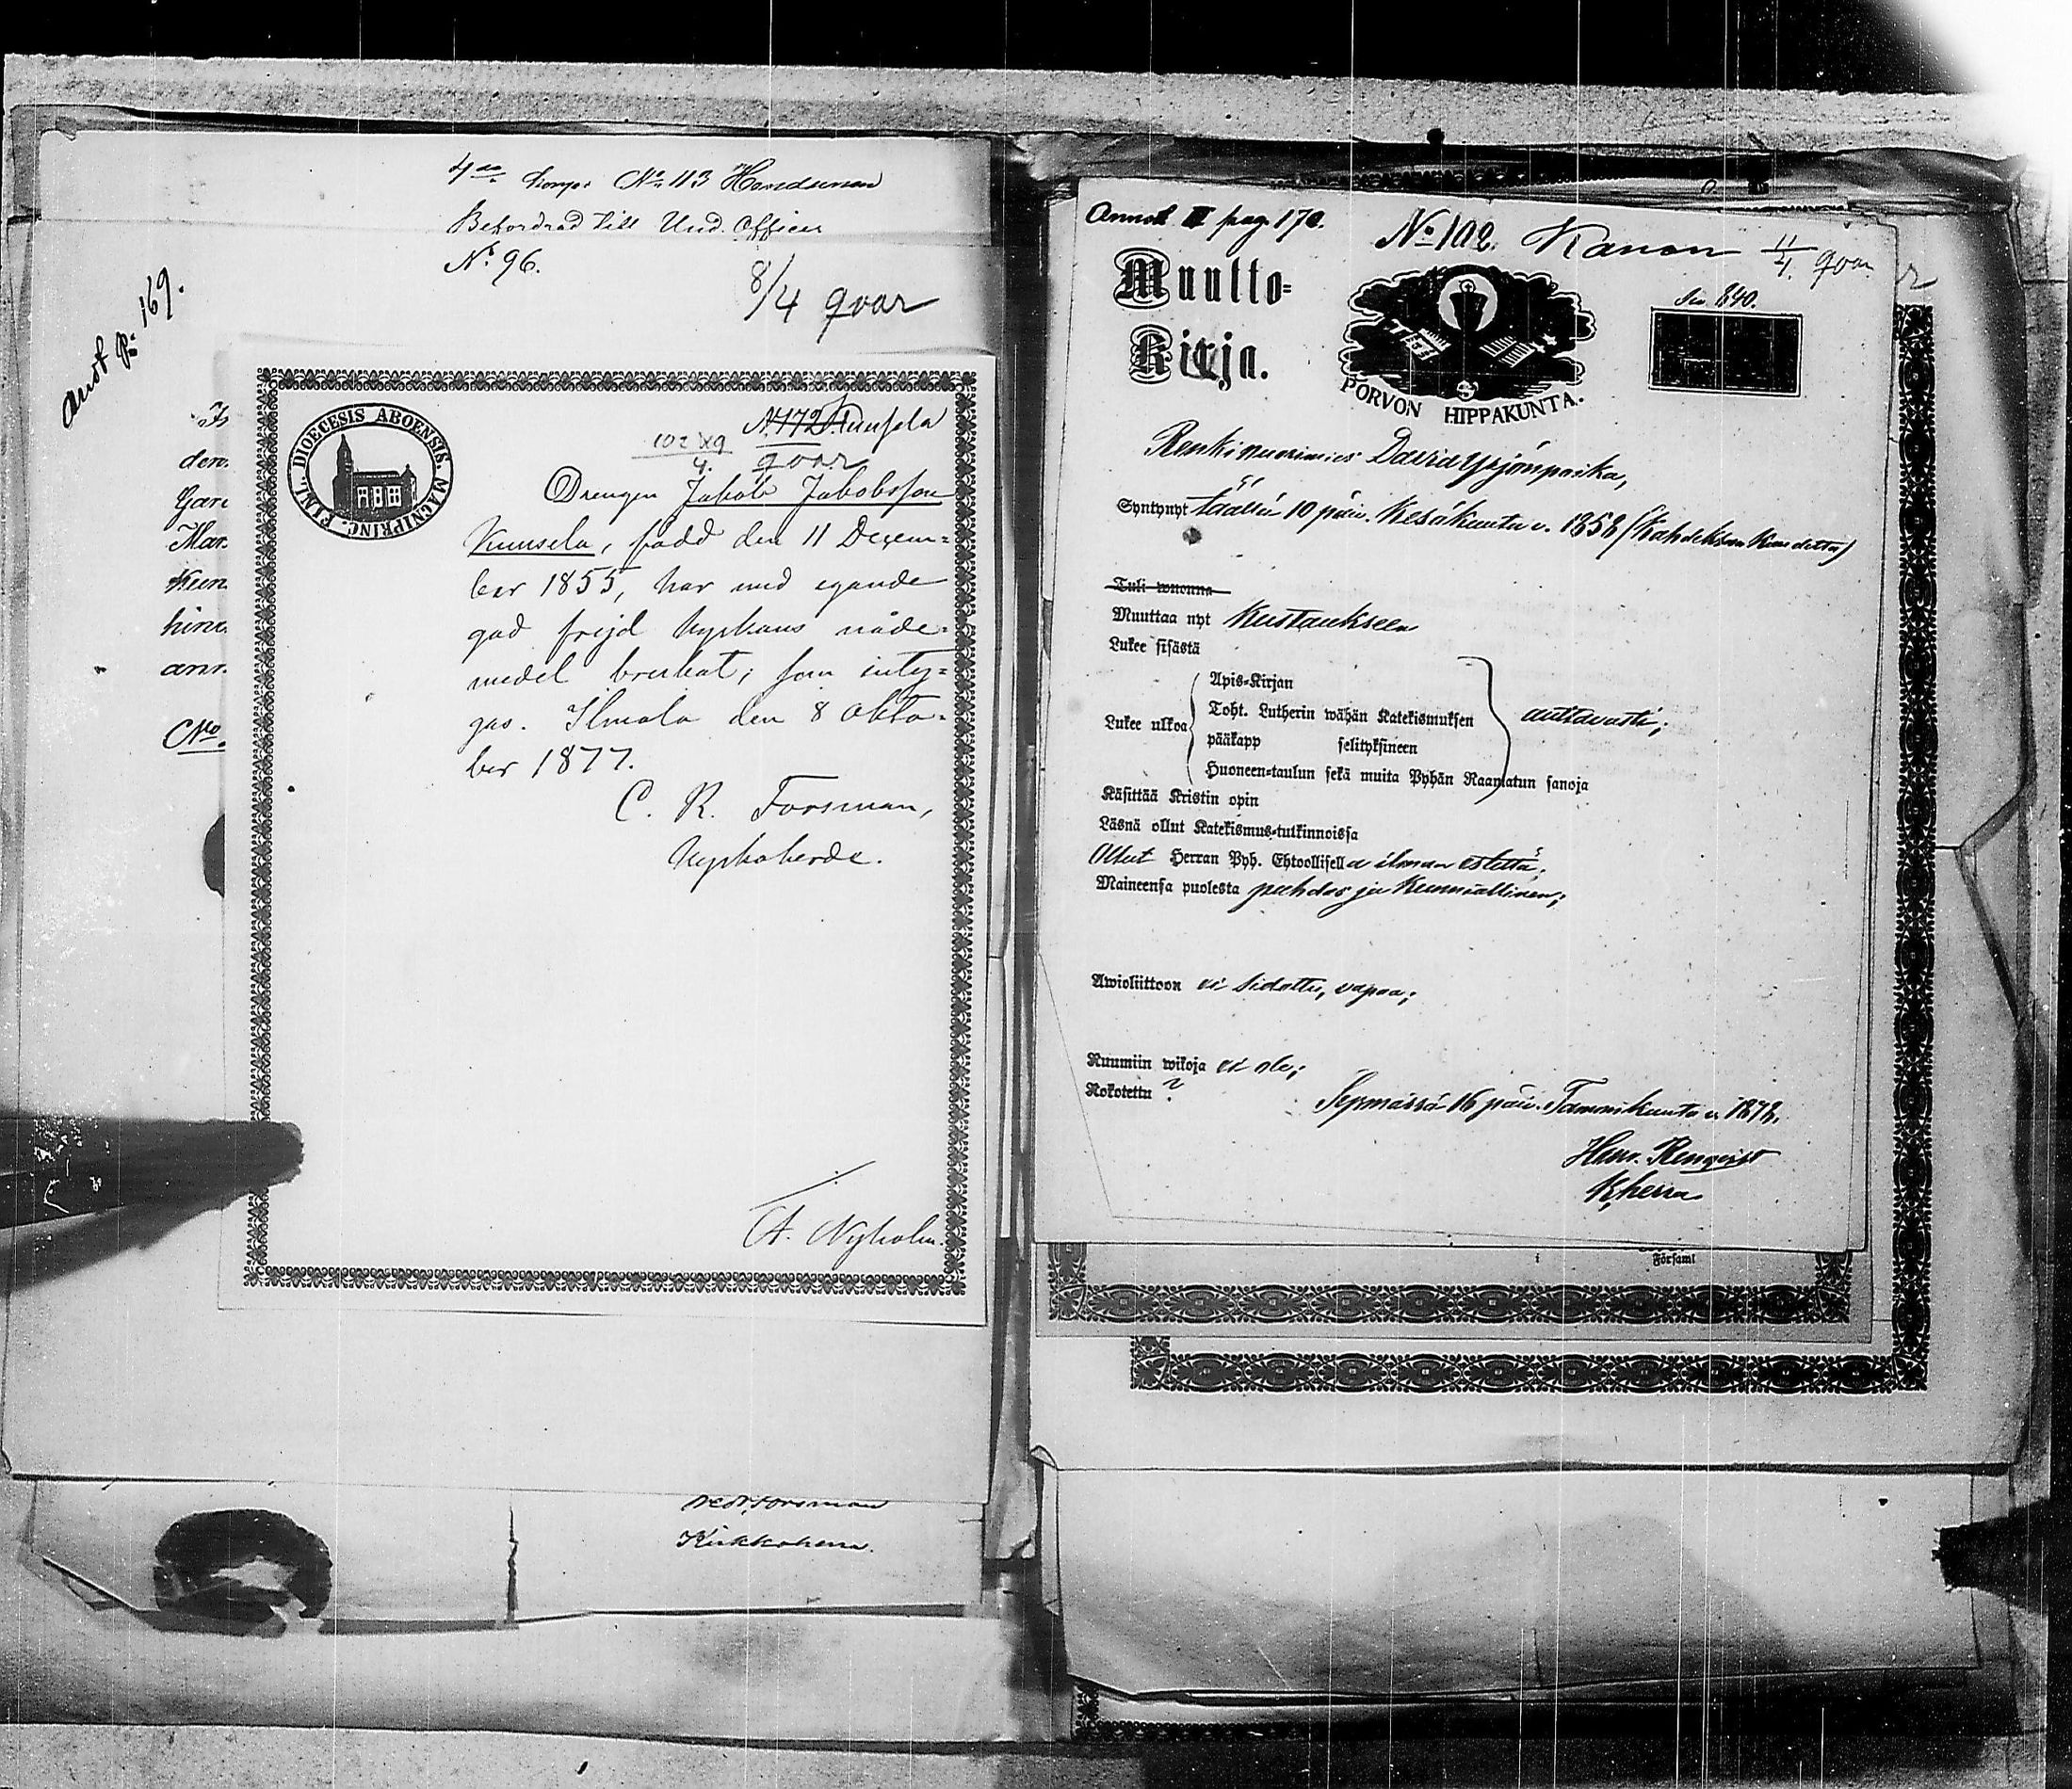 4de Komp: No 113 Handsman
Befordrad till Und. Officer
No 96.
8/4 qvar
Anot p: 169.
den
Gar
Mar
Kun
hin
ann
No.
FINL. DIOECESIS ABOENSIS. MAGNIPRINC.
N. 172 Kuusela
102 49
4. qvar
Drengen Jakob Jakobsson
Kuusela, född den 11 Decem=
ber 1855, har med egande
god frejd kyrkans nåde=
medel brukat; som inty=
gas. Ilmola den 8 Okto=
ber 1877.
C. R. Forsman,
Kyrkoherde.
A. Nyholm.
Forsman
Kirkkoherra.
Annot. II pag. 170.
No 102. Kanon 11/4. qvar
Muutto=
Kirja.
PORVON HIPPAKUNTA.
Siv. 840.
Renki nuorimies David Yrjönpoika,
Syntynyt täällä 10 päiv. Kesäkuuta v. 1858 (Kahdeksan Kuudetta)
Tuli wuonna
Muuttaa nyt Kustaukseen
Lukee sisästä
Lukee ulkoa
Apis=Kirjan
Toht. Lutherin wähän Katekismuksen
pääkapp selityksineen
Huoneen=taulun sekä muita Pyhän Raamatun sanoja
auttavasti;
Käsittää Kristin opin
Läsnä ollut Katekismus=tulkinnoissa
Ollut Herran Pyh. Ehtoollisella ilman estettä;
Maineensa puolesta puhdas ja kunniallinen;
Awioliittoon ei sidottu, vapaa;
Ruumiin wikoja ei ole;
Rokotettu ?
Sepmässä 16 päiv. Tammikuuta v. 1878.
Henr. Renqvist
Kherra
i Församl